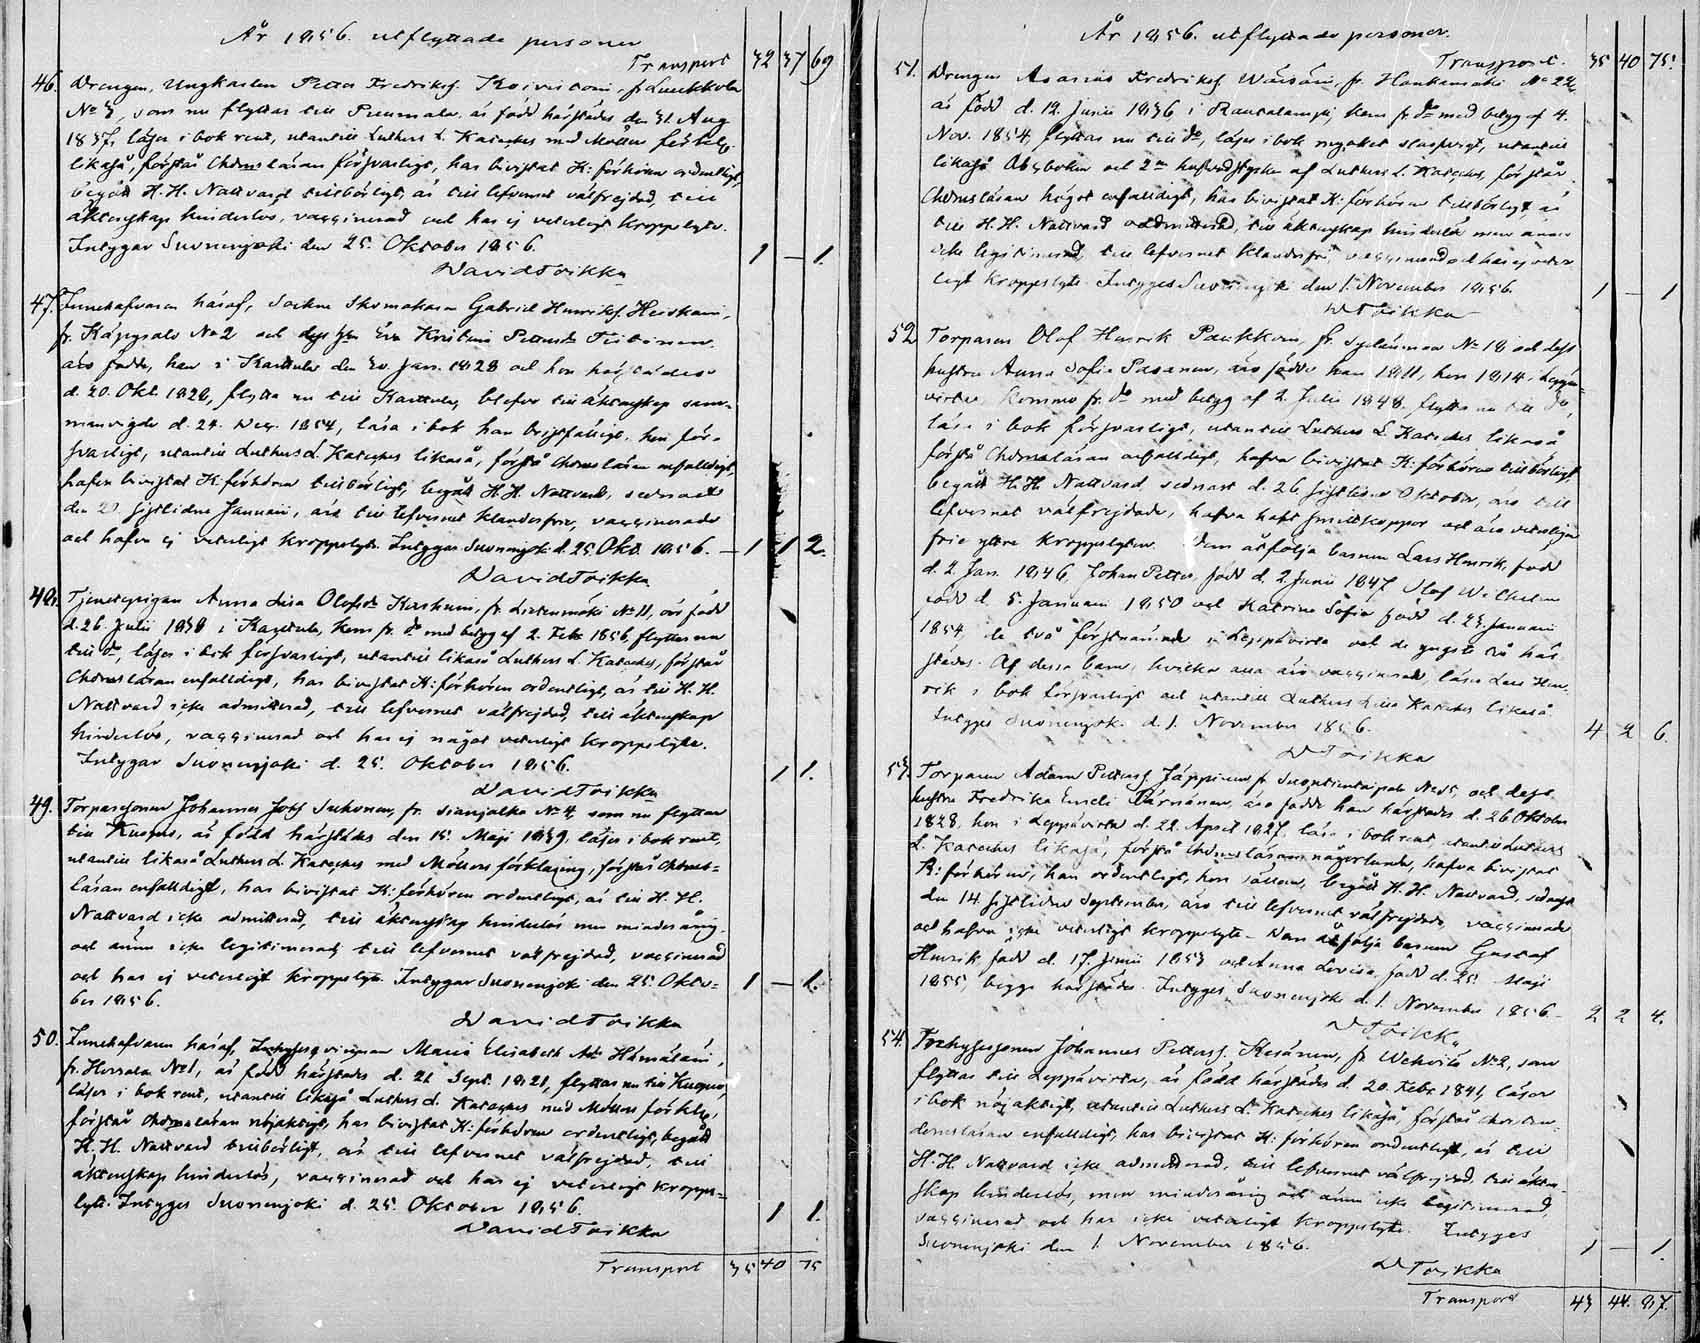 År 1856. utflyttade personer
Transport 32 37 69
46. Drengen, Ungkarlen Petter Fredriksf. Koivistoinen, fr. Luukkola
No 3, som nu flyttar till Puumala, är född härstädes den 31. Aug
1837, läser i bok rent, utantill Luthers L. Kateches med Möllers förklg.
likaså, förstår Chdmsläran försvarligt, har bivistat K: förhören ordentligt,
begått H. H. Nattvard tillbörligt, är till lefvernet välfrejdad, till
äktenskap hinderlös, vaccinerad och har ej veterligt kroppslyte.
Intygar Suonenjoki den 25. Oktober 1856. 1 — 1.
David Toikka
47. Innehafvaren häraf, Sockne Skomakaren Gabriel Henriksf. Heiskanen,
fr. Käpysalo No 2 och dess hu Eva Kristina Pettersdr Tiitinen,
äro födde, han i Karttula den 30. Jan. 1828 och hon härstädes
d. 20. Okt. 1828, flytta nu till Karttula, blefvo till äktenskap sam-
manvigde d. 24. Dec. 1854, läsa i bok han bristfälligt, hon för-
svarligt, utantill Luthers L. Kateches likaså, förstå Chdmsläran enfalldigt,
hafva bivistat K: förhören tillbörligt, begått H. H. Nattvard, sednast
den sistlidne Januari, äro till lefvernet klanderfrie, vaccinerade
och hafva ej veterligt kroppslyte. Intygar Suonenjoki d. 25. Okt. 1856. — 1 1 2.
David Toikka
48. Tjenstepigan Anna Lisa Olofsdr Karhunen, fr. Lietenmäki No 11, är född
d. 26. Julii 1838 i Karttula, kom fr. do med betyg af 2. Febr. 1856, flyttar nu
till do, läser i bok försvarligt, utantill likaså Luthers L. Kateches, förstår
Chdmsläran enfalldigt, har bivistat K: förhören ordentligt, är till H. H.
Nattvard icke admitterad, till lefvernet välfrejdad, till äktenskap
hinderlös, vaccinerad och har ej något veterligt kroppslyte.
Intygar Suonenjoki d. 25. Oktober 1856. 1 1.
David Toikka
49. Torparesonen Johannes Josefsf. Suhonen, fr. Sianjalka No 4, som nu flyttar
till Kuopio, är född härstädes den 15. Maji 1839, läser i bok rent,
utantill likaså Luthers L. Kateches med Möllers förklaring, förstår Chdoms-
läran enfalldigt, har bivistat K: förhören ordentligt, är till H. H.
Nattvard icke admitterad, till äktenskap hinderlös men minderårig
och ännu icke legitimerad, till lefvernet välfrejdad, vaccinerad
och har ej veterligt kroppslyte. Intygar Suonenjoki den 25. Okto- 1 — 1.
ber 1856.
David Toikka
50. Innehafvaren häraf, Inhysesqvinnan Maria Elisabeth Hämäläinen,
fr. No 1, är född härstädes d. 21 Sept. 1821, flyttar nu till Kuopio,
läser i bok rent, utantill likaså Luthers L. Kateches med Möllers förklg,
förstår Chdmsläran nöjaktigt, har bivistat K: förhören ordentligt, begått
H. H. Nattvard tillbörligt, är till lefvernet välfrejdad, till
äktenskap hinderlös, vaccinerad och har ej veterligt kropps-
lyte. Intyges Suonenjoki d. 25. Oktober 1856. 1 1.
David Toikka
Transport 35 40 75
År 1856. utflyttade personer.
Transport. 35 40 75.
51. Drengen Asarias Fredriksf. Väisänen, fr. Hankamäki No 22,
är född d. 12. Junii 1836 i Rautalampi, kom fr. do med betyg af 4.
Nov. 1854, flyttar nu till do, läser i bok mycket slarfvigt, utantill
likaså Abcboken och 2ne hufvudstycken af Luthers L. Kateches, förstår
Chdmsläran högst enfalldigt, har bivistat K: förhören tillbörligt, är
till H. H. Nattvard oadmitterad, till äktenskap hinderlös men ännu
icke legitimerad, till lefvernet klanderfri, vaccinerad och har ej veter-
ligt kroppslyte. Intyges Suonenjoki den 1. November 1856. 1 — 1
D Toikka
52 Torparen Olof Henrik Paukkonen, fr. Sydänmaa No 18 och dess
hustru Anna Sofia Pasanen, äro födde han 1811, hon 1814 i Leppä-
virta, kommo fr. do med betyg af 2. Julii 1848, flytta nu till do,
läsa i bok försvarligt, utantill Luthers L. Kateches likaså
förstå Chdmsläran enfalldigt, hafva bivistat K: förhören tillbörligt,
begått H. H. Nattvard sednast d. 26. sistlidne Oktober, äro till
lefvernet välfrejdade, hafva haft smittkoppor och äro veterligen
frie yttre kroppslyten. Dem åtfölja barnen Lars Henrik, född
d. 2. Jan. 1846, Johan Petter, född d. 2 Junii 1847, Olof Wilhelm
född d. 5. Januarii 1850 och Katrina Sofia född d. 23. Januarii
1854, de två förstnämnde i Leppävirta och de yngste två här-
städes. Af dessa barn, hvilka alla äro vaccinerade, läser Lars Hen-
rik i bok försvarligt och utantill Luthers Lilla Kateches likaså.
Intyges Suonenjoki d. 1. November 1856. 4 2 6.
D Toikka
53. Torparen Adam Pettersf. Jäppinen, fr. No 5, och dess
hustru Fredrika Enseli Pärnänen, äro födde han härstädes d. 26 Oktober
1828, hon i Leppävirta d. 22. April 1827, läsa i bok rent, utantill Luthers
L. Kateches likaså, förstå Chdmsläran någorlunda, hafva bivistat
K: förhören, han ordentligt, hon sällan, begått H. H. Nattvard, sednast
den 14. sistlidne September, äro till lefvernet välfrejdade, vaccinerade
och hafva icke veterligt kroppslyte. Dem åtfölja barnen Gustaf
Henrik född d. 17. Junii 1853 och Anna Lovisa, född d. 25. Maji
1855, begge härstädes. Intyges, Suonenjoki d. 1. November 1856. 2 2 4.
D Toikka
54. Inhysessonen Johannes Pettersf. Kesänen, fr. Vehvilä No 2, som
flyttar till Leppävirta, är född härstädes d. 20. Febr. 1841, läser
i bok nöjaktigt, utantill Luthers L. Kateches likaså, förstår Christen-
domsläran enfalldigt, har bivistat K: förhören ordentligt, är till
H. H. Nattvard icke admitterad, till lefvernet välfrejdad, till äkten-
skap hinderlös, men minderårig och ännu icke legitimerad,
vaccinerad och har icke veterligt kroppslyte. Intyges
Suonenjoki den 1. November 1856. 1 — 1.
D Toikka
Transport 43 44. 87.